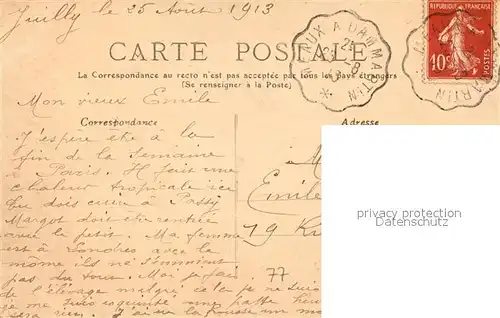 Juilly le 25 Août 1913
CARTE POSTALE
La Correspondance au recto n'est pas acceptée par tous les pays étrangers
(Se renseigner à la Poste)
AUX A DAMMARTIN
25
8
RÉPUBLIQUE FRANÇAISE
10c
POSTES
MARTIN
Mon vieux Emile
Correspondance
Adresse
J'espère être à la
fin de la semaine
à Paris. Il fait une
chaleur tropicale ici
Tu dois cuire à Passy
Margot doit être rentrée
avec le petit. Ma femme
est à Londres avec la
môme ils ne s'ennuient
pas du tout. Moi je fais
de l'élevage malgré cela je ne suis
je me suis esquinté une patte
M
Emile
79
77
privacy protection
Datenschutz